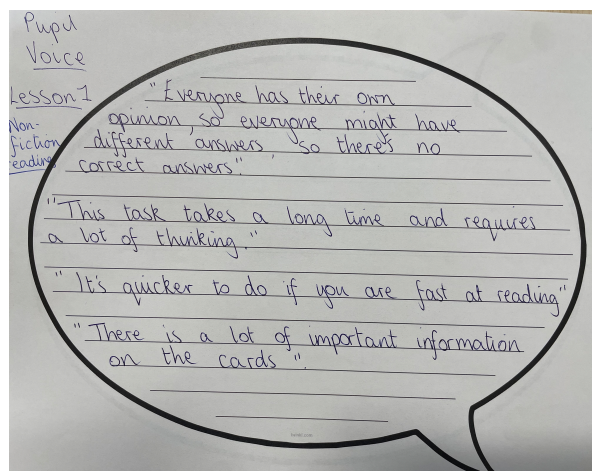 Pupil
Voice
Lesson 1
Non-
fiction
eading
"Everyone has their own
opinion, so everyone might have
different answers, so there's no
correct answers".
"This task takes a long time and requires
a lot of thinking."
"It's quicker to do if you are fast at reading"
"There is a lot of important information
on the cards".